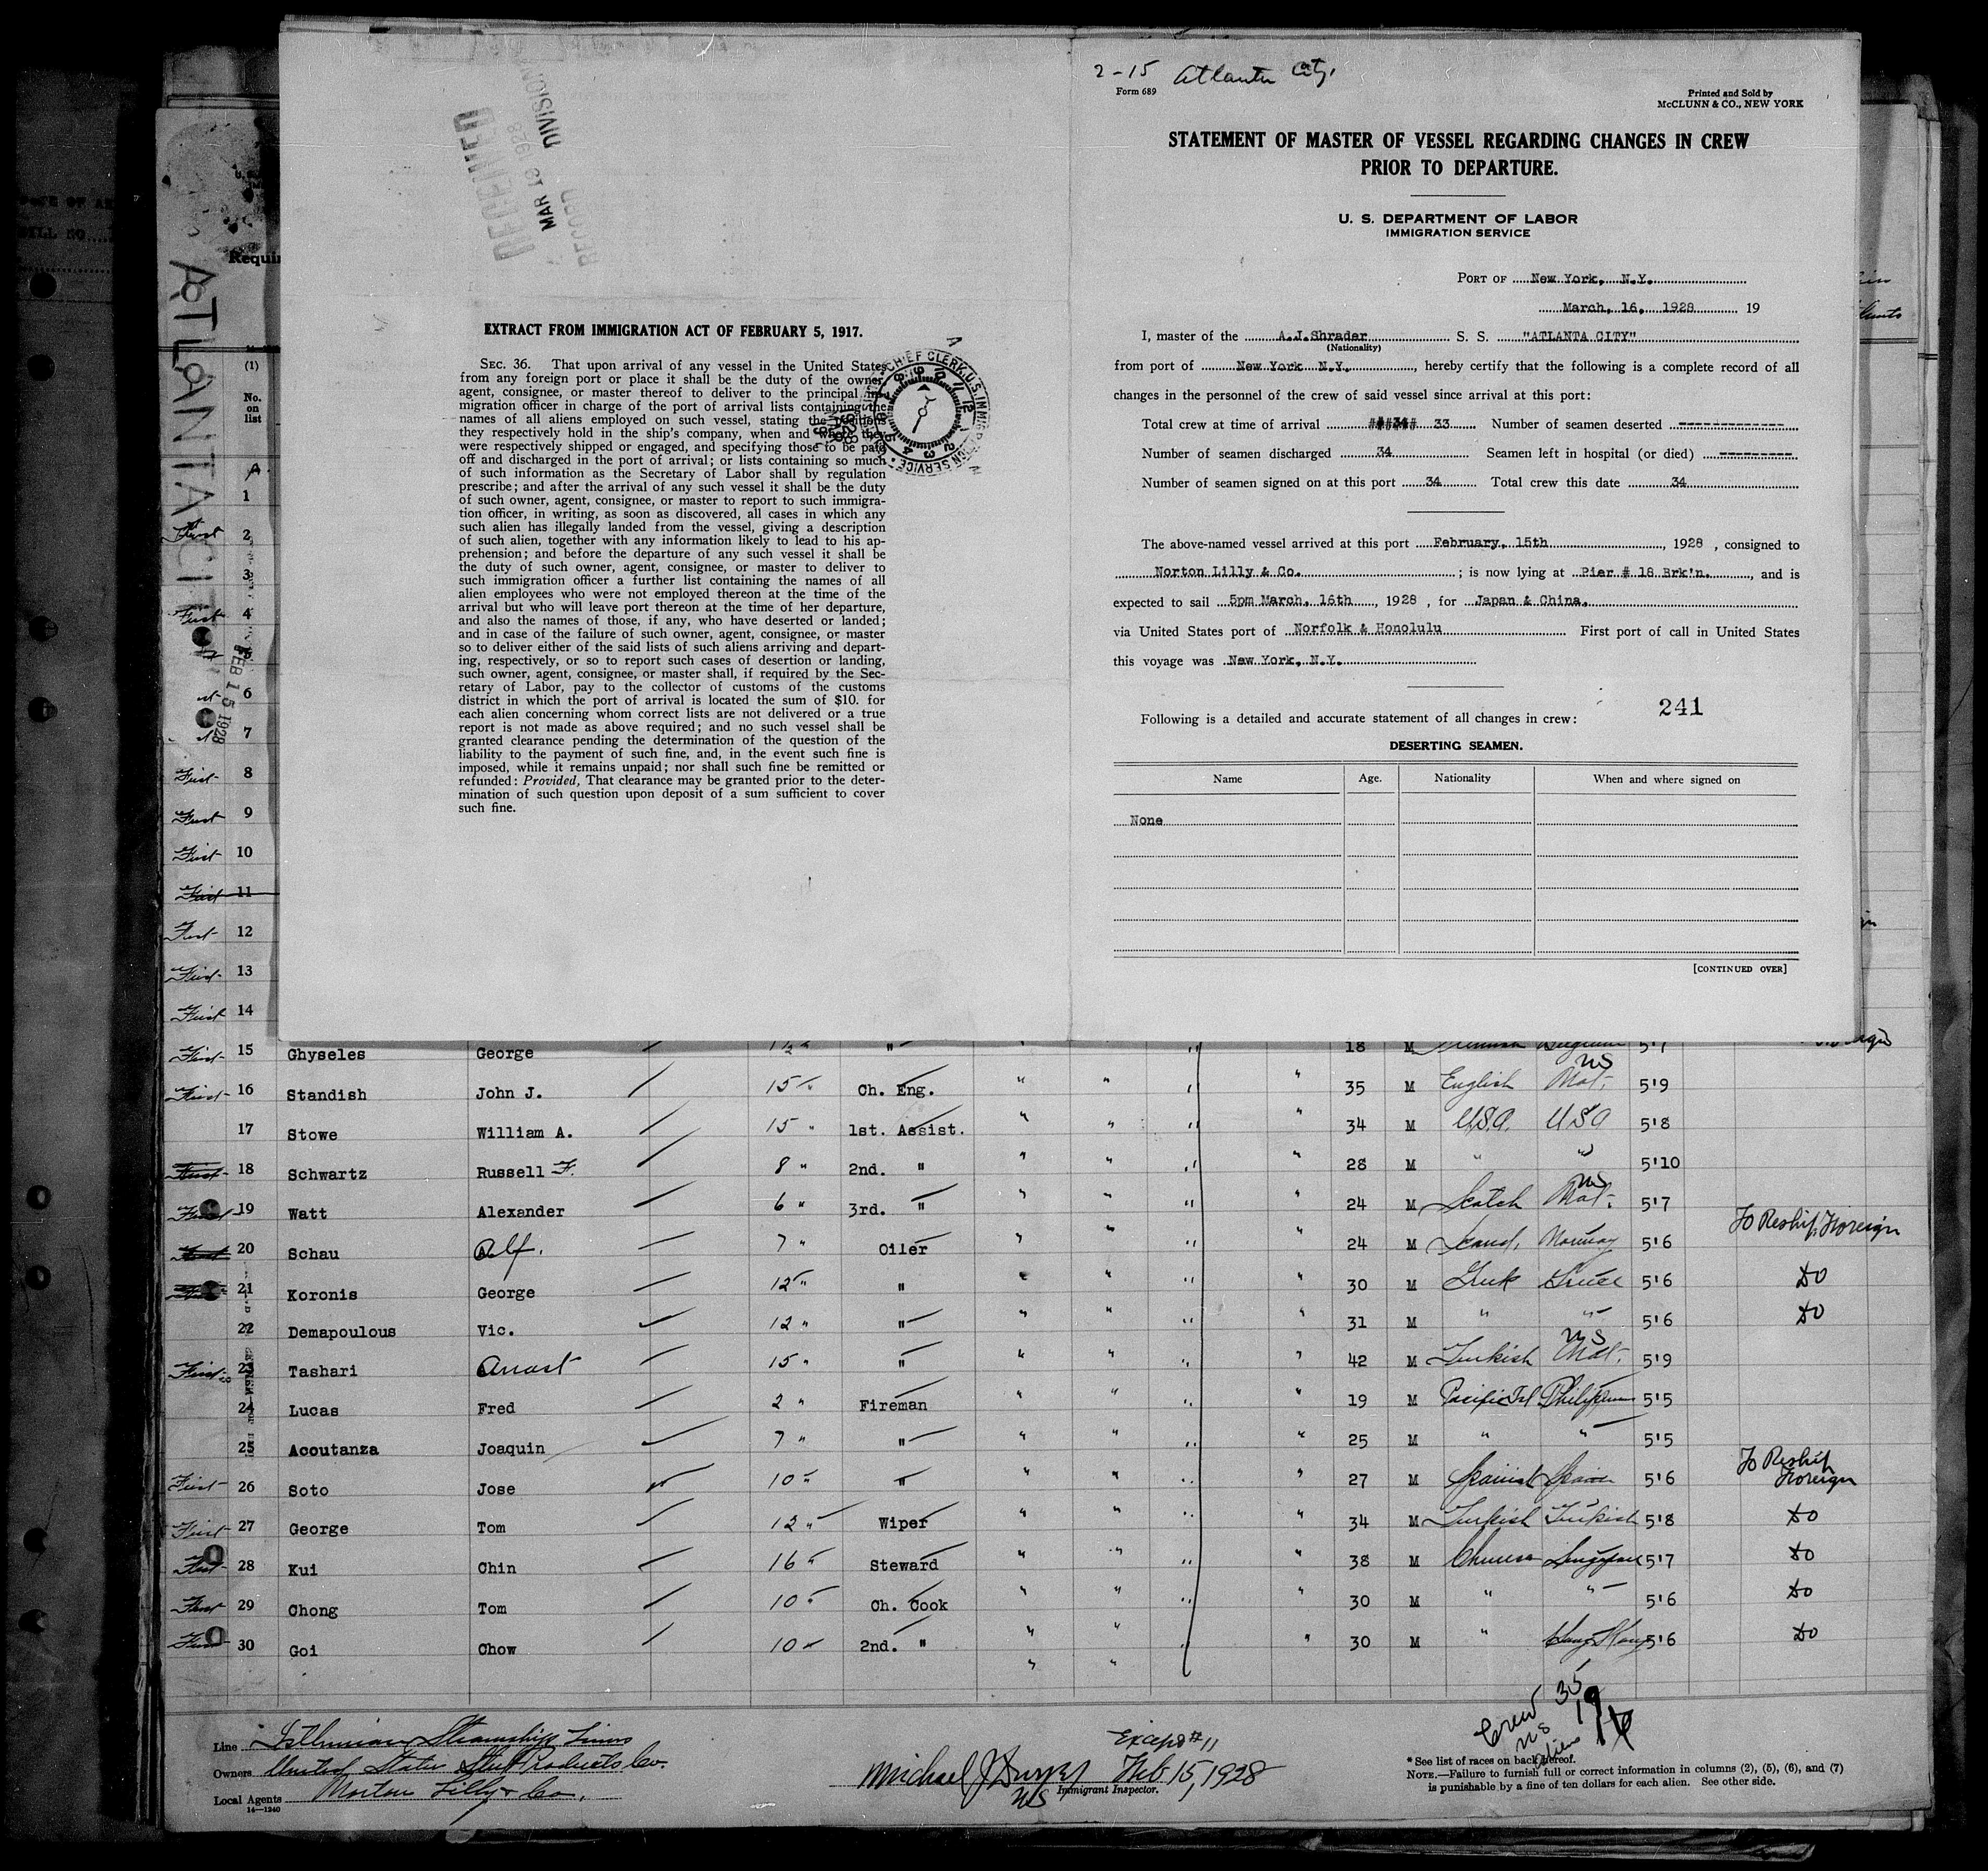 2-15 Atlanta City.
Form 689
Printed and Sold by
McCLUNN & CO., NEW YORK
STATEMENT OF MASTER OF VESSEL REGARDING CHANGES IN CREW
PRIOR TO DEPARTURE.
U. S. DEPARTMENT OF LABOR
IMMIGRATION SERVICE
PORT OF New York, N.Y.
March, 16, 1928 19
I, master of the A.J.Shrader S. S. "ATLANTA CITY"
(Nationality)
from port of New York N.Y., hereby certify that the following is a complete record of all
changes in the personnel of the crew of said vessel since arrival at this port:
Total crew at time of arrival 33 Number of seamen deserted --------------
Number of seamen discharged 34 Seamen left in hospital (or died) ----------
Number of seamen signed on at this port 34 Total crew this date 34
The above-named vessel arrived at this port February, 15th, 1928, consigned to
Norton Lilly & Co.; is now lying at Pier # 18 Brk'n., and is
expected to sail 5pm March, 16th, 1928, for Japan & China.
via United States port of Norfolk & Honolulu First port of call in United States
this voyage was New York, N.Y.
241
Following is a detailed and accurate statement of all changes in crew:
DESERTING SEAMEN.
Name Age. Nationality When and where signed on
None
[CONTINUED OVER]
RECEIVED
MAR 19 1928
RECORD DIVISION
EXTRACT FROM IMMIGRATION ACT OF FEBRUARY 5, 1917.
SEC. 36. That upon arrival of any vessel in the United States
from any foreign port or place it shall be the duty of the owner,
agent, consignee, or master thereof to deliver to the principal im-
migration officer in charge of the port of arrival lists containing the
names of all aliens employed on such vessel, stating the positions
they respectively hold in the ship's company, when and where they
were respectively shipped or engaged, and specifying those to be paid
off and discharged in the port of arrival; or lists containing so much
of such information as the Secretary of Labor shall by regulation
prescribe; and after the arrival of any such vessel it shall be the duty
of such owner, agent, consignee, or master to report to such immigra-
tion officer, in writing, as soon as discovered, all cases in which any
such alien has illegally landed from the vessel, giving a description
of such alien, together with any information likely to lead to his ap-
prehension; and before the departure of any such vessel it shall be
the duty of such owner, agent, consignee, or master to deliver to
such immigration officer a further list containing the names of all
alien employees who were not employed thereon at the time of the
arrival but who will leave port thereon at the time of her departure,
and also the names of those, if any, who have deserted or landed;
and in case of the failure of such owner, agent, consignee, or master
so to deliver either of the said lists of such aliens arriving and depart-
ing, respectively, or so to report such cases of desertion or landing,
such owner, agent, consignee, or master shall, if required by the Sec-
retary of Labor, pay to the collector of customs of the customs
district in which the port of arrival is located the sum of $10. for
each alien concerning whom correct lists are not delivered or a true
report is not made as above required; and no such vessel shall be
granted clearance pending the determination of the question of the
liability to the payment of such fine, and, in the event such fine is
imposed, while it remains unpaid; nor shall such fine be remitted or
refunded: Provided, That clearance may be granted prior to the deter-
mination of such question upon deposit of a sum sufficient to cover
such fine.
CHIEF CLERK U.S. IMMIGRATION SERVICE
ATLANTA CITY
FEB 15 1928
Requir
(1)
No.
on
list
1
First 2
3
First 4
5
6
7
First 8
First 9
First 10
First 11
First 12
First 13
First 14
First 15 Ghyseles George " " 18 M 5'7
First 16 Standish John J. 15 " Ch. Eng. " " " " 35 M English US Nat. 5'9
17 Stowe William A. 15 " 1st. Assist. " " " " 34 M U.S.A. USA 5'8
First 18 Schwartz Russell F. 8 " 2nd. " " " " " 28 M " " 5'10
First 19 Watt Alexander 6 " 3rd. " " " " " 24 M Scotch US Nat. 5'7
20 Schau Rolf. 7 " Oiler " " " " 24 M Scand. Norway 5'6 To Reship Foreign
21 Koronis George 12 " " " " " " 30 M Greek Greece 5'6 DO
22 Demapoulous Vic. 12 " " " " " " 31 M " " 5'6 DO
First 23 Tashari Anast 15 " " " " " " 42 M Turkish US Nat. 5'9
24 Lucas Fred 2 " Fireman " " " " 19 M Pacific Isl Philippines 5'5
25 Acoutanza Joaquin 7 " " " " " " 25 M " " 5'5
First 26 Soto Jose 10 " " " " " " 27 M Spanish Spain 5'6 To Reship Foreign
First 27 George Tom 12 " Wiper " " " " 34 M Turkish Turkish 5'8 DO
First 28 Kui Chin 16 " Steward " " " " 38 M Chinese Singapore 5'7 DO
First 29 Chong Tom 10 " Ch. Cook " " " " 30 M " " 5'6 DO
First 30 Goi Chow 10 " 2nd. " " " " " 30 M " Hong Kong 5'6 DO
Line Isthmian Steamship Lines
Owners United States Steel Products Co.
Local Agents Norton Lilly & Co.
14—1240
Except #11
Michael J Feb. 15, 1928
Immigrant Inspector.
Crew 35
US 19
Aliens
* See list of races on back hereof.
NOTE.—Failure to furnish full or correct information in columns (2), (5), (6), and (7)
is punishable by a fine of ten dollars for each alien. See other side.